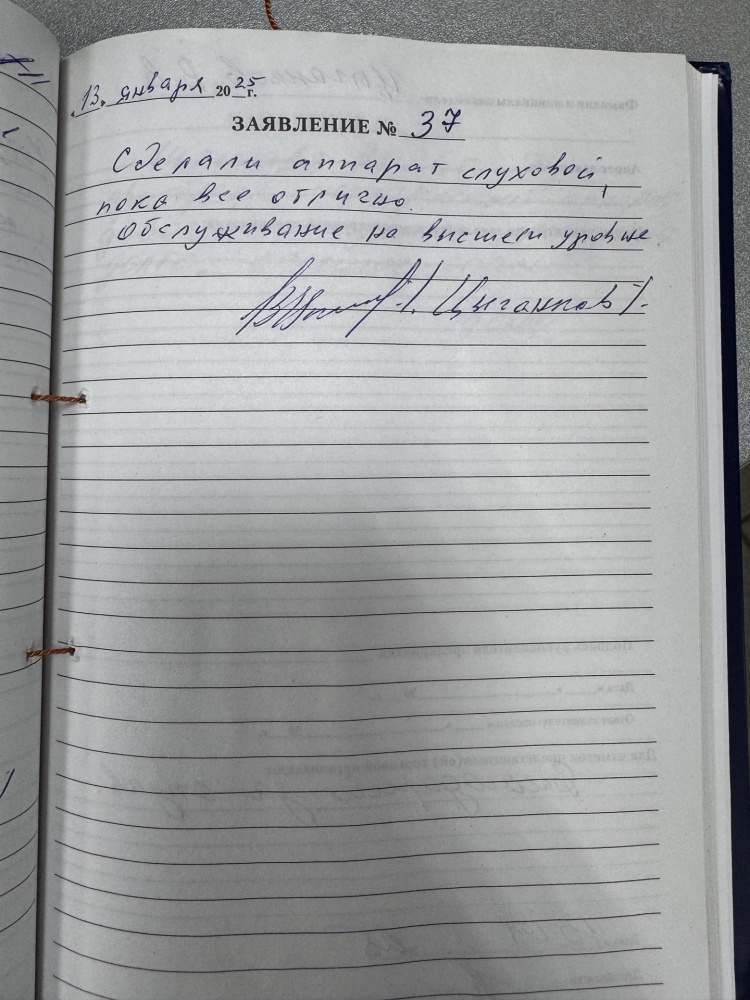 13. января 2025 г.
ЗАЯВЛЕНИЕ № 37
Сделали аппарат слуховой,
пока все отлично.
Обслуживание на высшем уровне.
/Цыганков/.